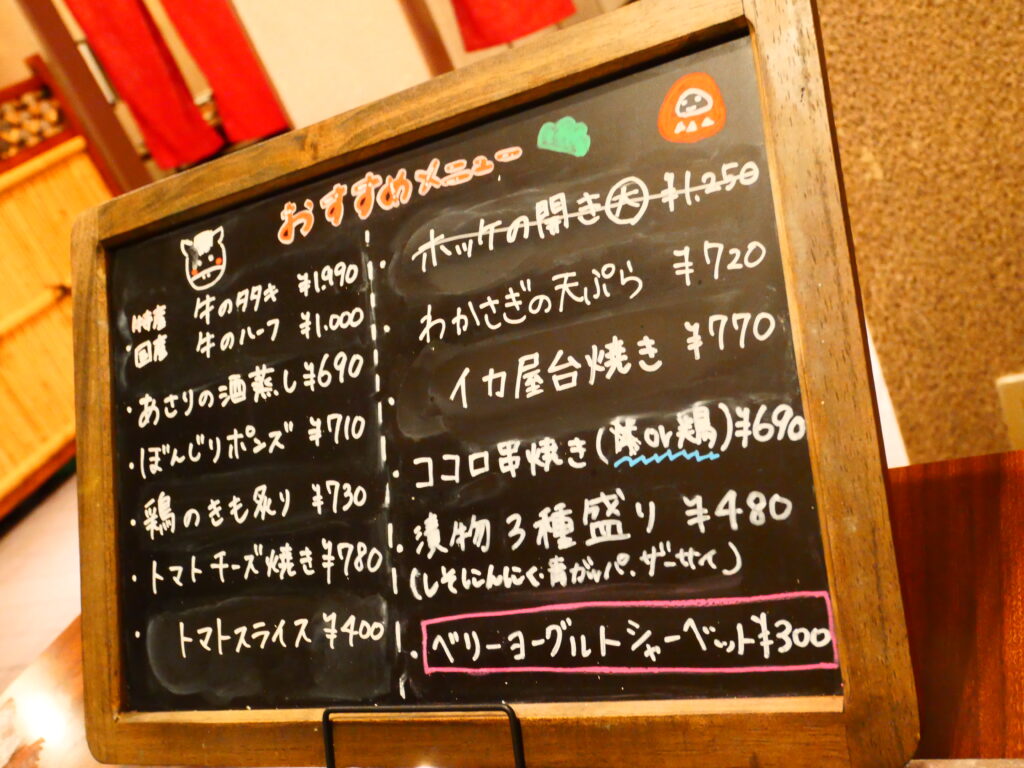 おすすめメニュー
特産 牛のタタキ ¥1.990
国産 牛のハーフ ¥1.000
・あさりの酒蒸し ¥690
・ぼんじりポンズ ¥710
・鶏のきも炙り ¥730
・トマトチーズ焼き ¥780
・トマトスライス ¥400
・ホッケの開き大 ¥1.250
・わかさぎの天ぷら ¥720
・イカ屋台焼き ¥770
・ココロ串焼き(豚or鶏) ¥690
・漬物3種盛り ¥480
(しそにんにく・青ガッパ、ザーサイ)
・ベリーヨーグルトシャーベット ¥300